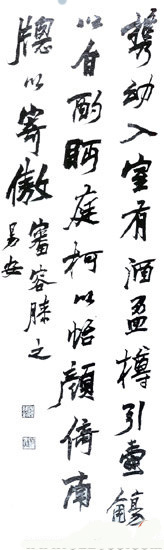 攜幼入室有酒盈樽引壺觴
以自酌眄庭柯以怡顏倚南
牕以寄傲審容膝之
易安